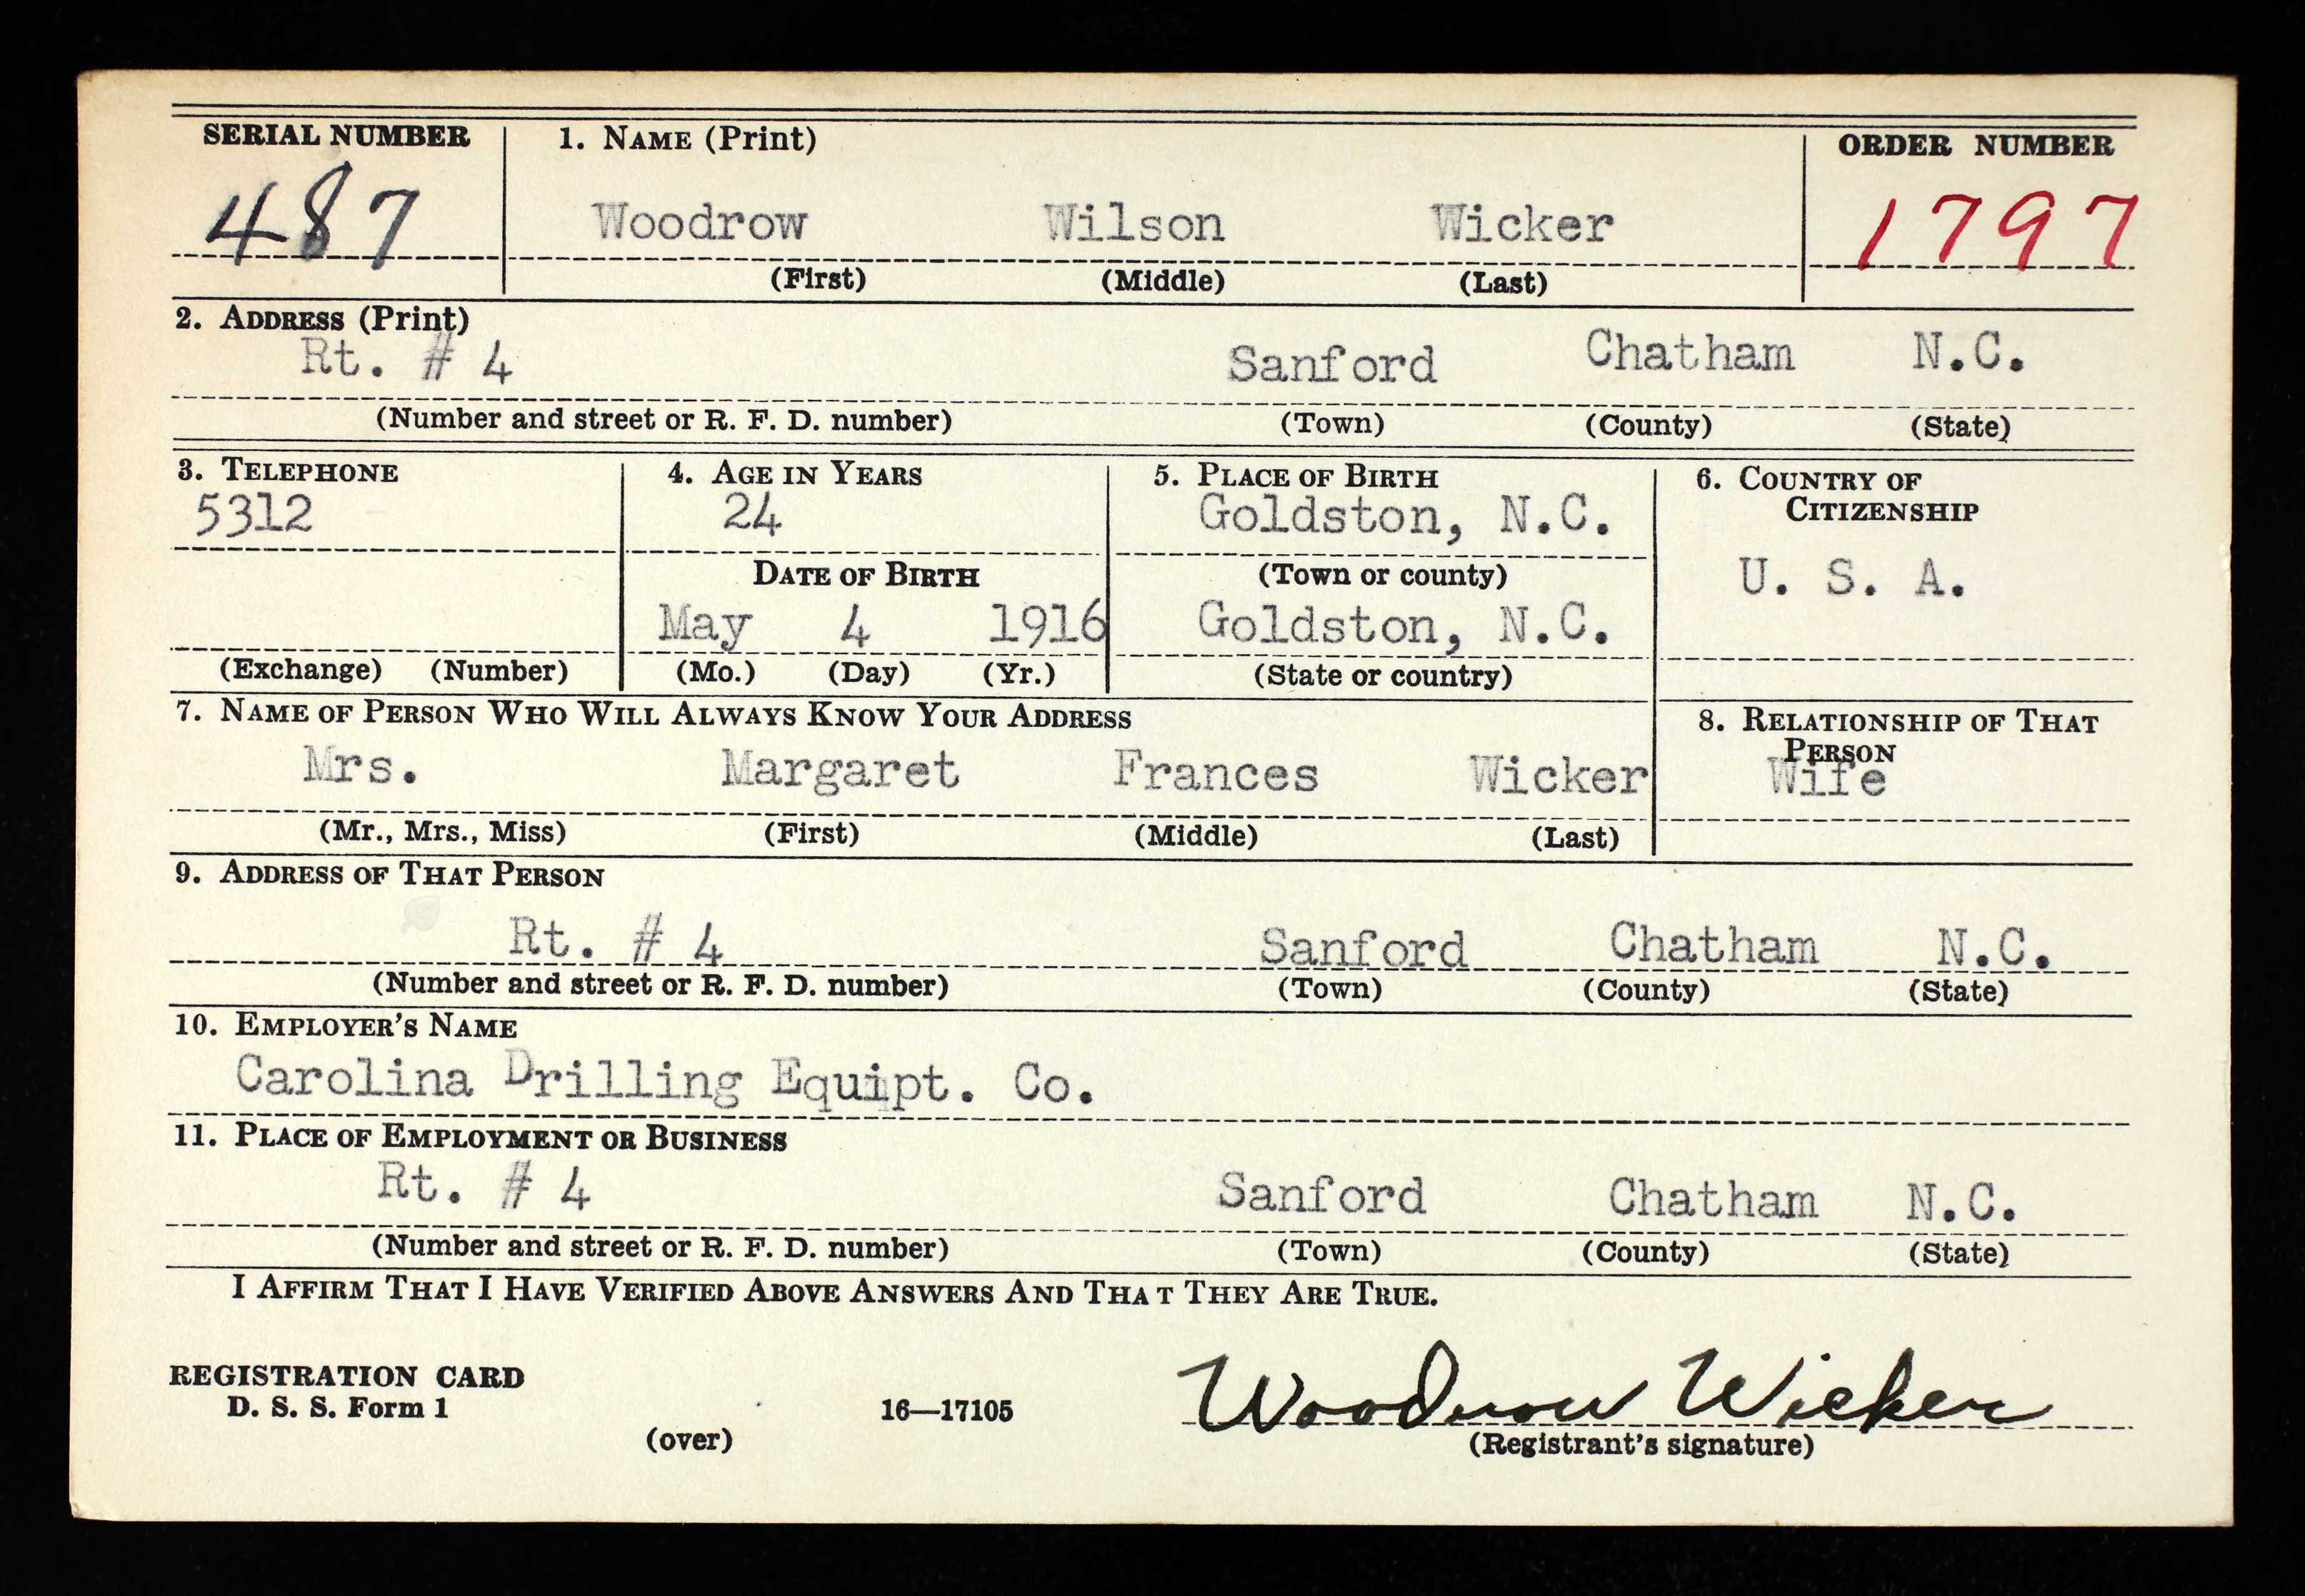 SERIAL NUMBER 1. NAME (Print) ORDER NUMBER
487 Woodrow Wilson Wicker 1797
(First) (Middle) (Last)
2. ADDRESS (Print)
Rt. # 4 Sanford Chatham N.C.
(Number and street or R. F. D. number) (Town) (County) (State)
3. TELEPHONE 4. AGE IN YEARS 5. PLACE OF BIRTH 6. COUNTRY OF
CITIZENSHIP
5312 24 Goldston, N.C.
DATE OF BIRTH (Town or county) U. S. A.
May 4 1916 Goldston, N.C.
(Exchange) (Number) (Mo.) (Day) (Yr.) (State or country)
7. NAME OF PERSON WHO WILL ALWAYS KNOW YOUR ADDRESS 8. RELATIONSHIP OF THAT
PERSON
Mrs. Margaret Frances Wicker Wife
(Mr., Mrs., Miss) (First) (Middle) (Last)
9. ADDRESS OF THAT PERSON
Rt. # 4 Sanford Chatham N.C.
(Number and street or R. F. D. number) (Town) (County) (State)
10. EMPLOYER'S NAME
Carolina Drilling Equipt. Co.
11. PLACE OF EMPLOYMENT OR BUSINESS
Rt. # 4 Sanford Chatham N.C.
(Number and street or R. F. D. number) (Town) (County) (State)
I AFFIRM THAT I HAVE VERIFIED ABOVE ANSWERS AND THA T THEY ARE TRUE.
REGISTRATION CARD
D. S. S. Form 1 16—17105 Woodrow Wicker
(over) (Registrant's signature)